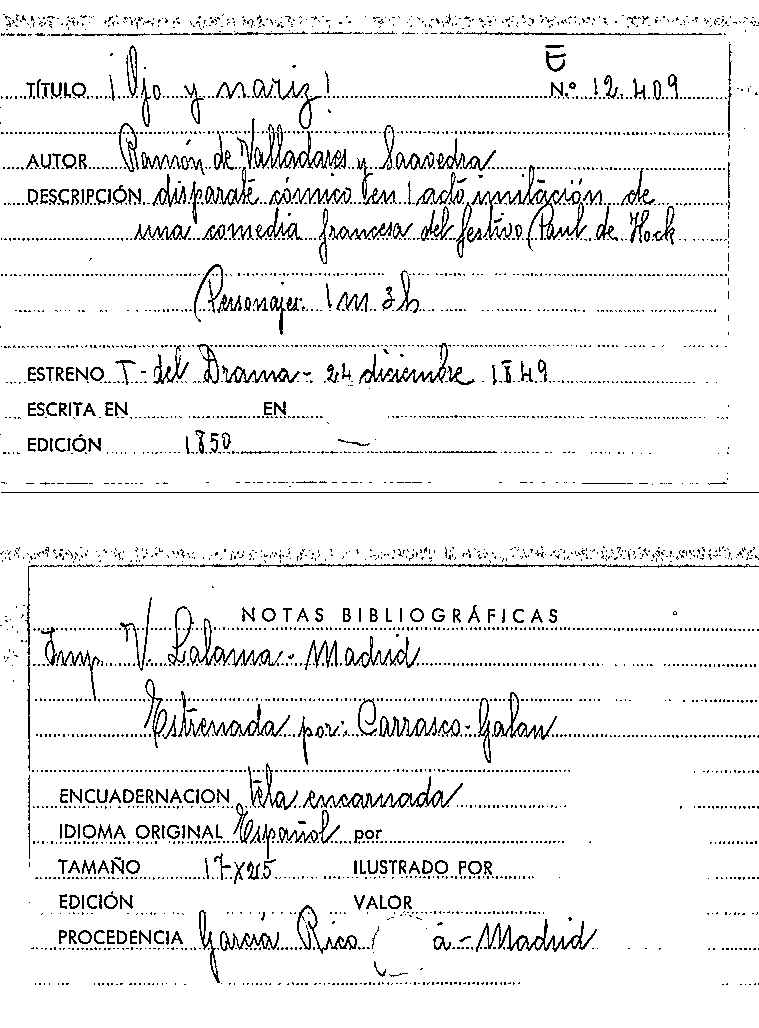 E
TÍTULO ¡Ojo y nariz! N.º 12.409
AUTOR Ramón de Valladares y Saavedra
DESCRIPCIÓN disparate cómico en 1 acto imitación de
una comedia francesa del festivo Paul de Kock
Personajes: 1 m 3 h
ESTRENO T- del Drama - 24 diciembre 1849
ESCRITA EN EN
EDICIÓN 1850 —
NOTAS BIBLIOGRÁFICAS
Imp. V. Lalama - Madrid
Estrenada por: Carrasco - Galan
ENCUADERNACION tela encarnada
IDIOMA ORIGINAL Español por
TAMAÑO 17 x 25 ILUSTRADO POR
EDICIÓN VALOR
PROCEDENCIA García Rico a - Madrid